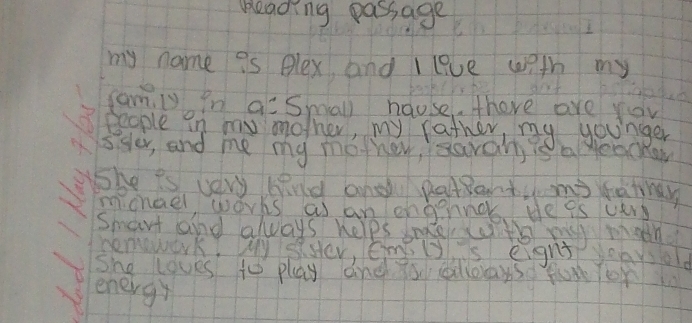 Reading passage
my name is Alex, and I live with my
family in a small hause. there are fou
people in my mother, my father, my younger
sister, and me my mother, sarah, is a teacher
She is very kind and patiant. my father,
michael works as an enginner He is very
Smart and always helps me with my math
homework. My sister, Emily is eight years old
She loves to play and is always full of
energy